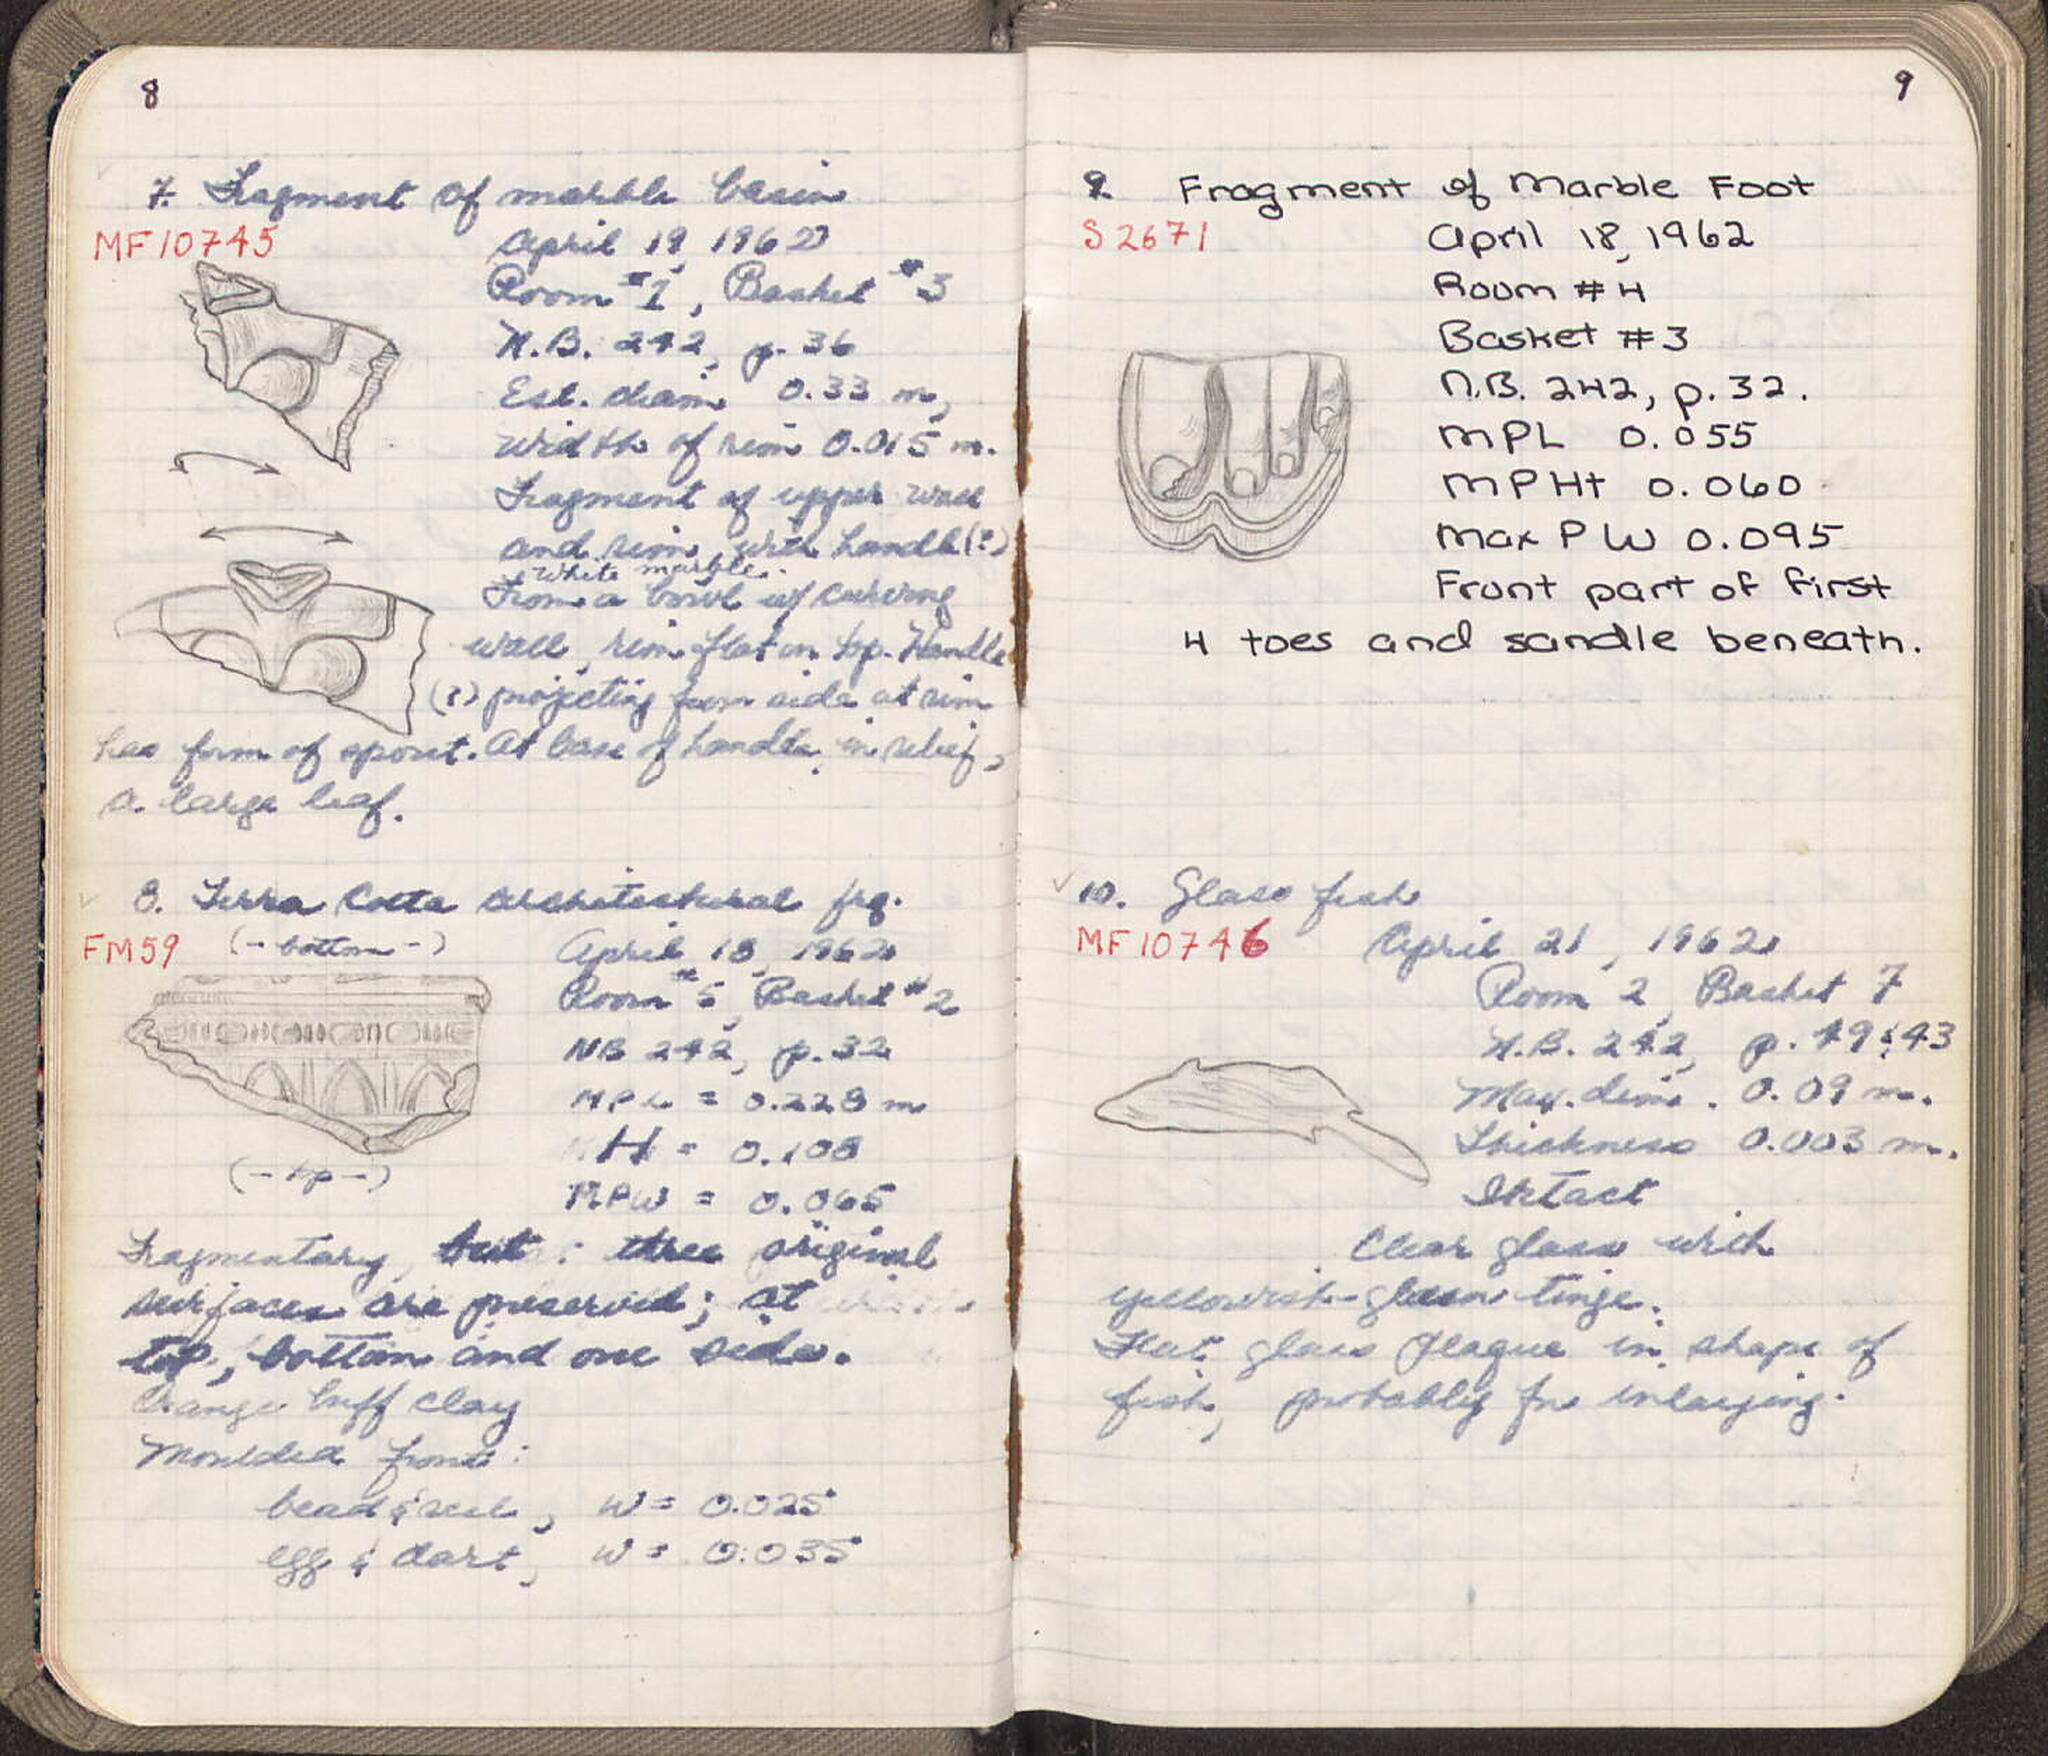 8
7. Fragment of marble basin
MF10745
April 19, 1962
Room #1, Basket #3
N.B. 242, p. 36
Est. diam 0.33 m,
width of rim 0.015 m.
Fragment of upper wall
and rim, with handle(?)
White marble.
From a bowl w/ curving
wall, rim flat on top. Handle
(?) projecting from side at rim
has form of spout. At base of handle, in relief,
a large leaf.
8. Terra Cotta architectural frg.
FM59
(- bottom -)
April 18, 1962
Room #5, Basket #2
NB 242, p. 32
MPL = 0.228 m
H = 0.108
MPW = 0.065
(- top -)
Fragmentary, but: three original
surfaces are preserved; at
top, bottom and one side.
Orange buff clay
Moulded front:
bead & reel, W = 0.025
egg & dart, W = 0.035
9
9. Fragment of Marble Foot
S 2671
April 18, 1962
Room #4
Basket #3
N.B. 242, p. 32.
MPL 0.055
MPHt 0.060
Max P W 0.095
Front part of first
4 toes and sandle beneath.
10. Glass fish
MF 10746
April 21, 1962
Room 2, Basket 7
N.B. 242, p. 49 & 43
Max. dim. 0.09 m.
Thickness 0.003 m.
Intact
Clear glass with
yellowish-green tinge.
Flat glass plaque in shape of
fish, probably for inlaying.